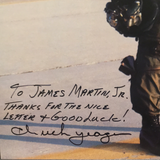 TO JAMES MARTIN, JR.
THANKS FOR THE NICE
LETTER & GOOD LUCK!
Chuck Yeager